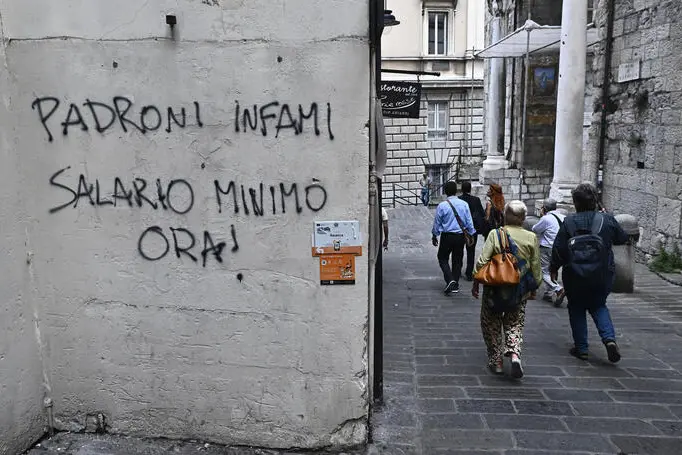 PADRONI INFAMI
SALARIO MINIMO
ORA!